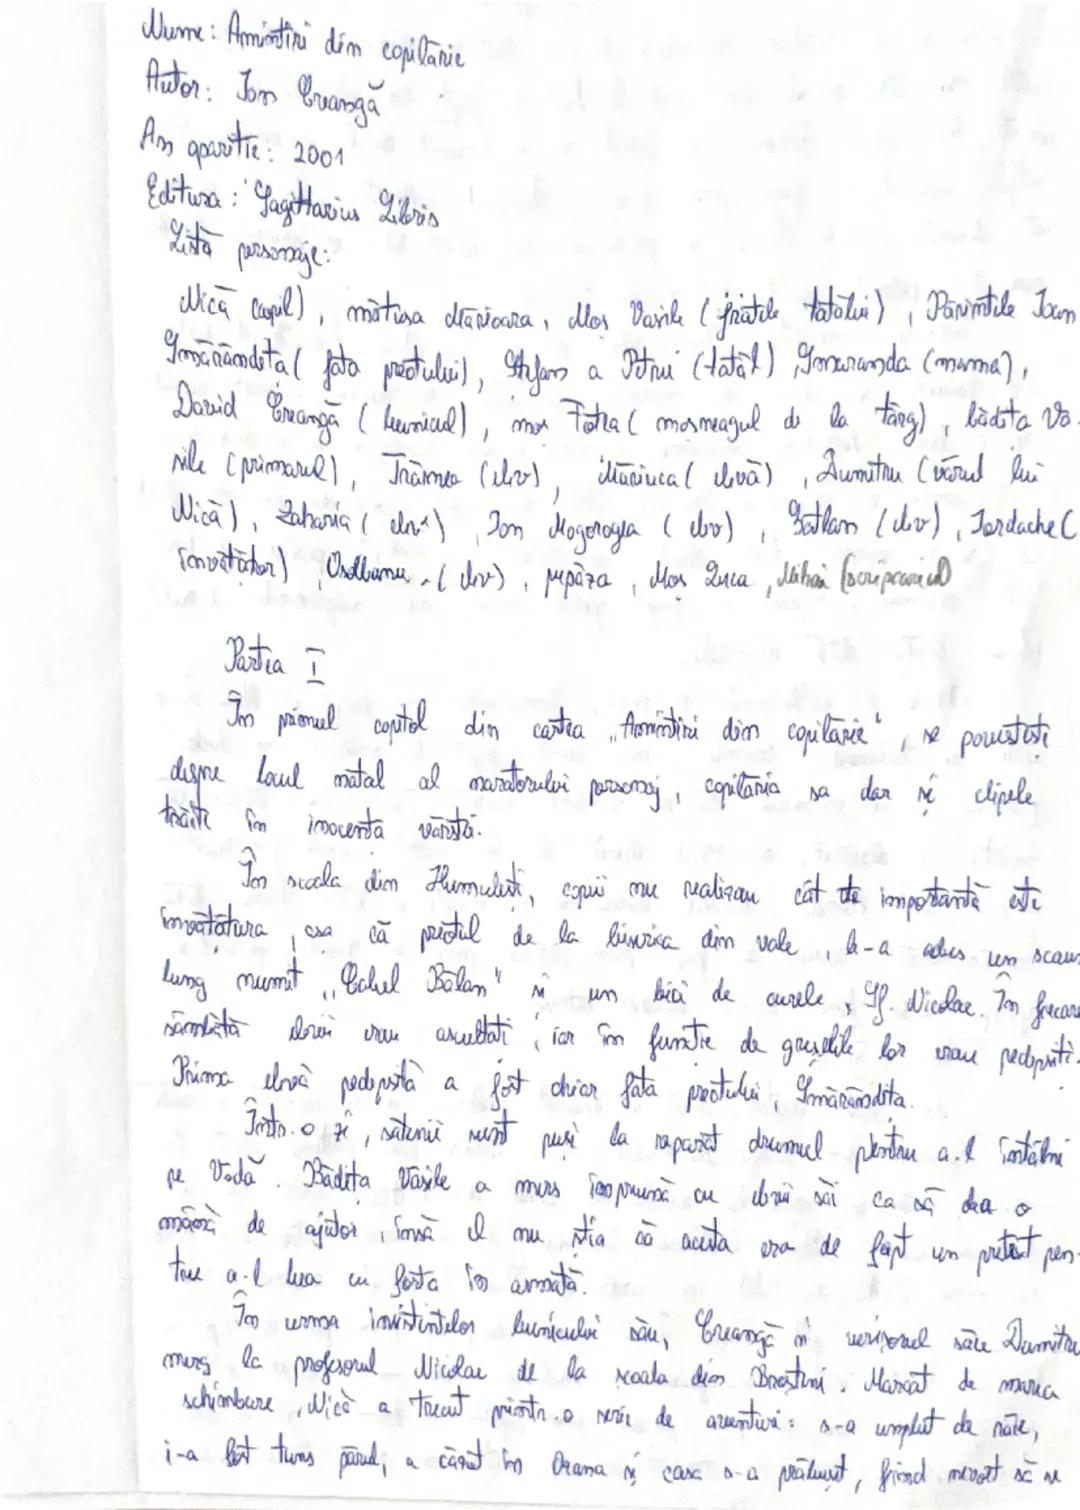 Nume: Amintiri din copilărie
Autor: Ion Creangă
An aparitie: 2001
Editura: Sagittarius Libris
Listă personaje:
Nică (copil), mătusa Mărioara, Mos Vasile (fratele tatălui), Părintele Ioan
Smărăndita (fata preotului), Stefan a Petrui (tatăl), Smaranda (mama),
David Creangă (bunicul), mos Fotea (mosneagul de la târg), bădita Va-
sile (primarul), Trăsnea (elev), Măriuca (elevă), Dumitru (vărul lui
Nică), Zaharia (elev), Ion Mogorogea (elev), Gatlan (elev), Iordache (
învătător), Oslbanu (elev), pupăza, Mos Luca, Mihai (scripcarul)
Partea I
În primul capitol din cartea „Amintiri din copilărie", se povesteste
despre locul natal al naratorului personaj, copilăria sa dar si clipele
trăite în inocenta vârstă.
În scoala din Humulesti, copiii nu realizau cât de importantă este
învătătura, asa că preotul de la biserica din vale, le-a adus un scaun
lung numit „Calul Bălan" si un bici de curele, Sf. Nicolae. În fiecare
sâmbătă elevii erau ascultati, iar în functie de greselile lor erau pedepsiti.
Prima elevă pedepsită a fost chiar fata preotului, Smărăndita.
Într-o zi, sătenii sunt pusi la reparat drumul pentru a-l întâlni
pe Vodă. Bădita Vasile a mers împreună cu elevii săi ca să dea o
mână de ajutor, însă el nu stia că acesta era de fapt un pretext pen-
tru a-l lua cu forta în armată.
În urma insistintelor bunicului său, Creangă si verisorul săue Dumitru
merg la profesorul Nicolae de la scoala din Brosteni. Marcat de marea
schimbare, Nică a trecut printr-o serie de aventuri: s-a umplut de râie,
i-a fost tuns părul, a căzut în Ozana si casa s-a prăbusit, fiind nevoit să se